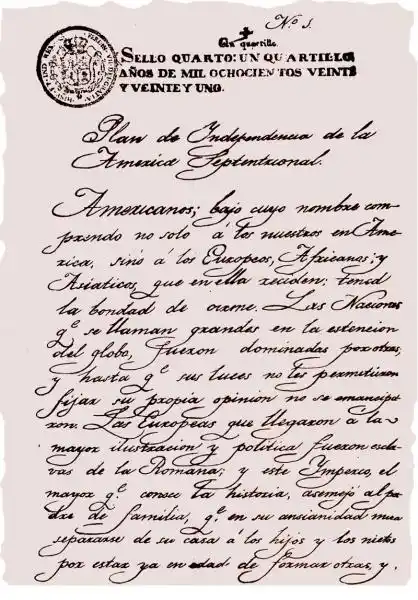 Nº 1.
Un quartillo.
SELLO QUARTO: UN QUARTILLO
AÑOS DE MIL OCHOCIENTOS VEINTE
Y VEINTE Y UNO.
Plan de Independencia de la
America Septentrional.
Americanos; bajo cuyo nombre com-
prendo no solo á los nuestros en Ame-
rica, sinó á los Europeos, Africanos; y
Asiaticos, que en ella reciden: tened
la bondad de oirme. Las Naciones
q.e se llaman grandes en la estencion
del globo, fueron dominadas por otras;
y hasta q.e sus luces no les permitieron
fijar su propia opinion no se emancipa-
ron. Las Europeas que llegaron á la
mayor ilustracion y politica fueron escla-
vas de la Romana; y este Imperio, el
mayor q.e conoce la historia, asemejó al pa-
dre de familia, q.e en su ansianidad mira
separarse de su casa á los hijos y los nietos
por estar ya en edad de formar otras, y